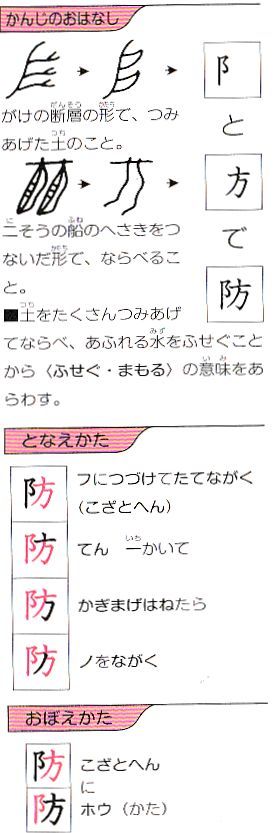 かんじのおはなし
阝
がけの断層の形で、つみ
あげた土のこと。
と
方
二そうの船のへさきをつ
ないだ形で、ならべるこ
と。
で
防
■土をたくさんつみあげ
てならべ、あふれる水をふせぐこと
から〈ふせぐ・まもる〉の意味をあ
らわす。
となえかた
防 フにつづけてたてながく
(こざとへん)
防 てん 一かいて
防 かぎまげはねたら
防 ノをながく
おぼえかた
防 こざとへん
に
防 ホウ(かた)